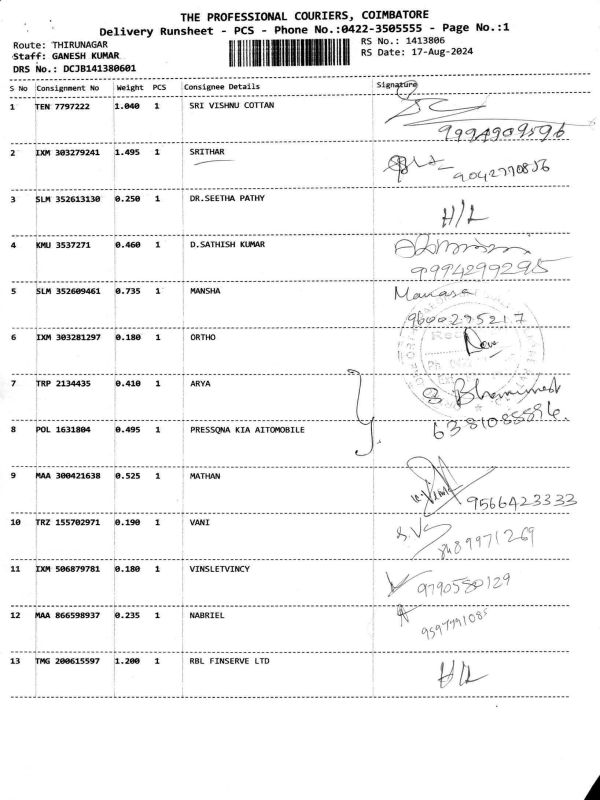 THE PROFESSIONAL COURIERS, COIMBATORE
Delivery Runsheet - PCS - Phone No.:0422-3505555 - Page No.:1
Route: THIRUNAGAR
RS No.: 1413806
Staff: GANESH KUMAR
RS Date: 17-Aug-2024
DRS No.: DCJB141380601
S No Consignment No Weight PCS Consignee Details Signature
1 TEN 7797222 1.040 1 SRI VISHNU COTTAN
9994909596
2 IXM 303279241 1.495 1 SRITHAR
9042770856
3 SLM 352613130 0.250 1 DR.SEETHA PATHY
H/L
4 KMU 3537271 0.460 1 D.SATHISH KUMAR
9994299295
5 SLM 352609461 0.735 1 MANSHA Manasa
9600295217
6 IXM 303281297 0.180 1 ORTHO
7 TRP 2134435 0.410 1 ARYA
6381088896.
8 POL 1631804 0.495 1 PRESSQNA KIA AITOMOBILE
9 MAA 300421638 0.525 1 MATHAN
9566423333
10 TRZ 155702971 0.190 1 VANI
8489971269
11 IXM 506879781 0.180 1 VINSLETVINCY
9790550129
12 MAA 866598937 0.235 1 NABRIEL
9597991085
13 TMG 200615597 1.200 1 RBL FINSERVE LTD
H/L